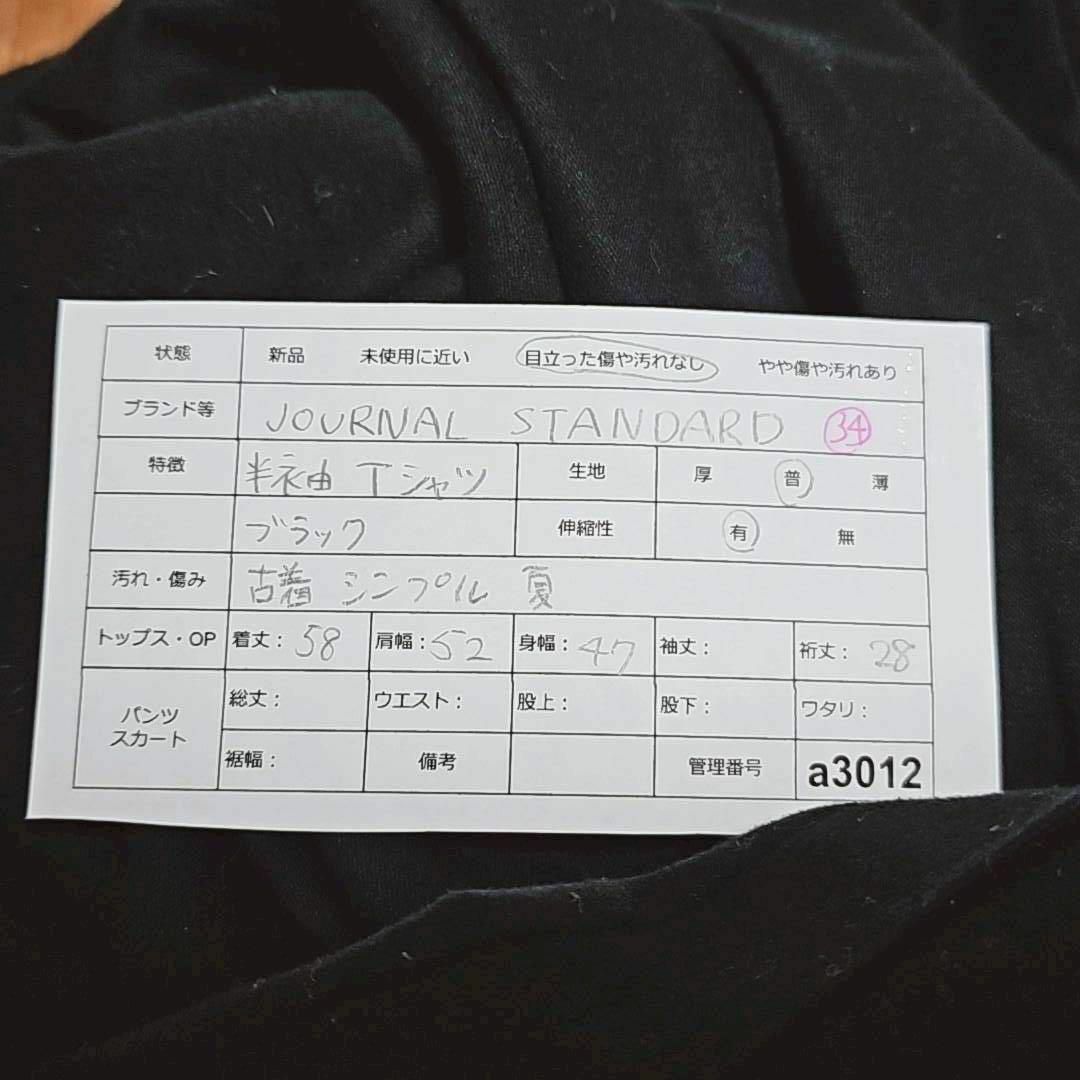 状態 新品 未使用に近い 目立った傷や汚れなし やや傷や汚れあり
ブランド等 JOURNAL STANDARD 34
特徴 半袖 Tシャツ 生地 厚 普 薄
ブラック 伸縮性 有 無
汚れ・傷み 古着 シンプル 夏
トップス・OP 着丈: 58 肩幅: 52 身幅: 47 袖丈: 裄丈: 28
パンツ スカート 総丈: ウエスト: 股上: 股下: ワタリ:
裾幅: 備考 管理番号 a3012